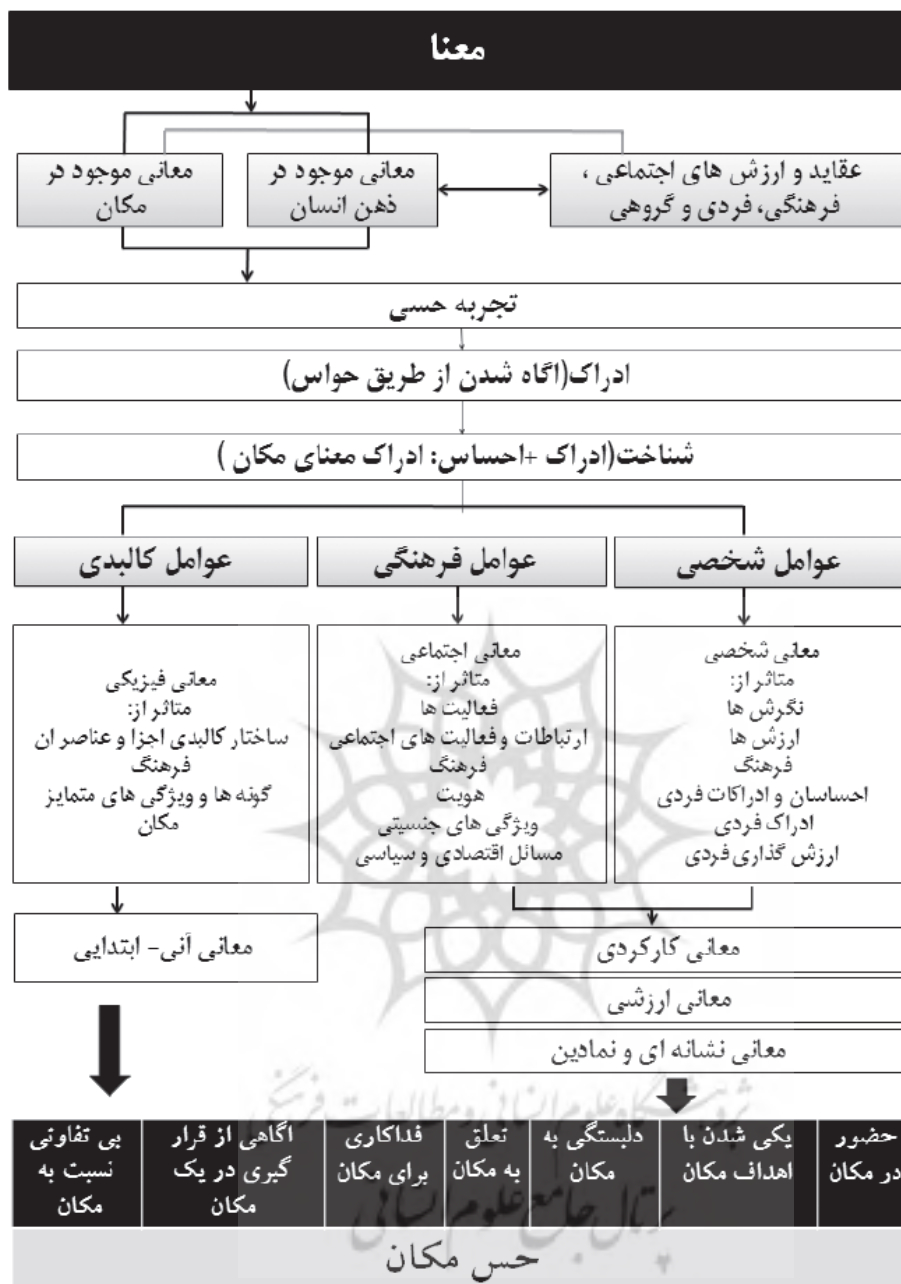 معنا
عقاید و ارزش های اجتماعی ،
فرهنگی، فردی و گروهی
معانی موجود در
ذهن انسان
معانی موجود در
مکان
تجربه حسی
ادراک(اگاه شدن از طریق حواس)
شناخت(ادراک +احساس: ادراک معنای مکان )
عوامل شخصی
عوامل فرهنگی
عوامل کالبدی
معانی شخصی
متاثر از:
نگرش ها
ارزش ها
فرهنگ
احساسان و ادراکات فردی
ادراک فردی
ارزش گذاری فردی
معانی اجتماعی
متاثر از:
فعالیت ها
ارتباطات و فعالیت های اجتماعی
فرهنگ
هویت
ویژگی های جنسیتی
مسائل اقتصادی و سیاسی
معانی فیزیکی
متاثر از:
ساختار کالبدی اجزا و عناصر ان
فرهنگ
گونه ها و ویژگی های متمایز
مکان
معانی کارکردی
معانی ارزشی
معانی نشانه ای و نمادین
معانی آنی- ابتدایی
پژوهشگاه علوم انسانی و مطالعات فرهنگی
حضور
در مکان
یکی شدن با
اهداف مکان
دلبستگی به
مکان
تعلق
به مکان
فداکاری
برای مکان
اگاهی از قرار
گیری در یک
مکان
بی تفاوتی
نسبت به
مکان
پرتال جامع علوم انسانی
حس مکان